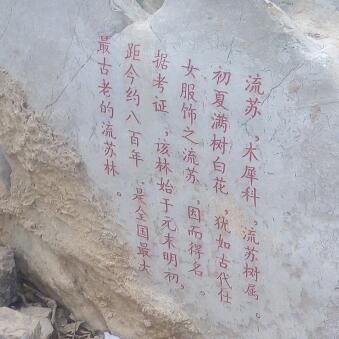 流苏，木犀科，流苏树属。
初夏满树白花，犹如古代仕
女服饰之流苏，因而得名。
据考证，该林始于元末明初，
距今约八百年，是全国最大
最古老的流苏林。